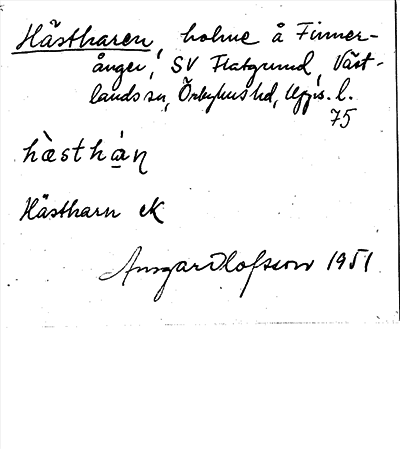 Hästharen, holme å Finner-
ånger, SV Flatgrund, Väst-
lands sn, Örbyhus hd, Upps. l.
75
hὰesthȧ̱ꞃ
Hästharn eK
Ansgar Olofsson 1951